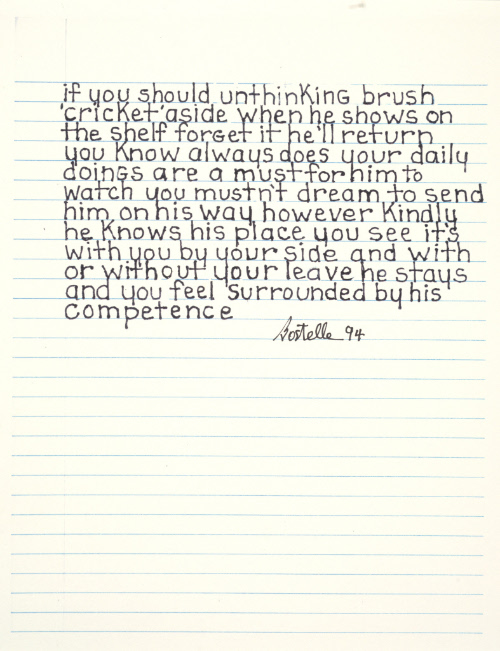 if you should unthinking brush
'cricket' aside when he shows on
the shelf forget it he'll return
you know always does your daily
doings are a must for him to
watch you mustn't dream to send
him on his way however kindly
he knows his place you see it's
with you by your side and with
or without your leave he stays
and you feel surrounded by his
competence
Bostelle 94